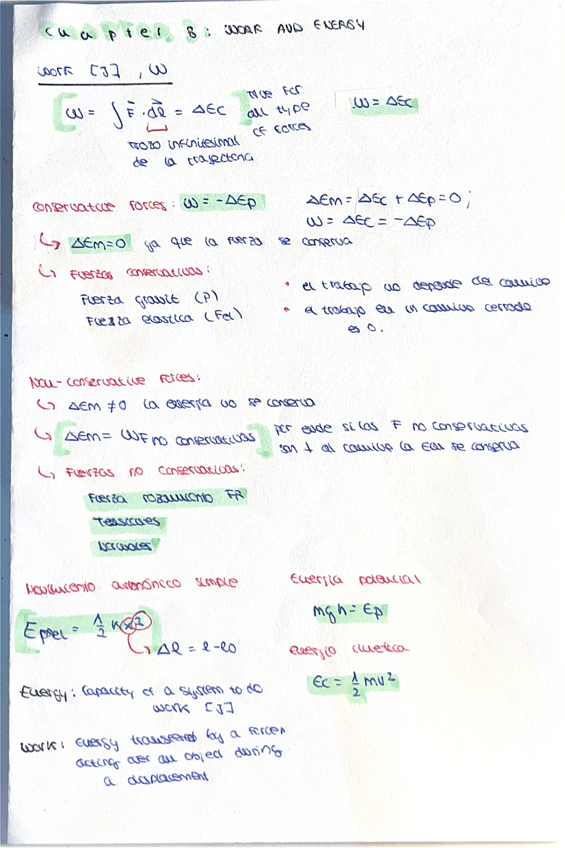 Chapter 8: WORK AND ENERGY
WORK [J], W
W = ∫ F⃗ · dl⃗ = ΔEc
true for
all type
of forces
W = ΔEc
trozo infinitesimal
de la trayectoria
conservative forces: W = -ΔEp
ΔEm = ΔEc + ΔEp = 0;
W = ΔEc = -ΔEp
↳ ΔEm=0 ya que la fuerza se conserva
↳ Fuerzas conservativas:
Fuerza gravit (P)
Fuerza elastica (Fel)
• el trabajo no depende del camino
• el trabajo en un camino cerrado
es 0.
Non-conservative forces:
↳ ΔEm ≠ 0 la energía no se conserva
↳ ΔEm = WF no conservativas
por ende si las F no conservativas
son ⊥ al camino la Em se conserva
↳ Fuerzas no conservativas:
Fuerza rozamiento FR
Tensiones
Normales
Movimiento armónico simple
Epel = 1/2 k x²
↳ Δl = l - l0
Energía potencial
mgh = Ep
energía cinetica
Ec = 1/2 mv²
Energy: capacity of a system to do
work [J]
work: energy transfered by a force
acting over an object during
a displacement